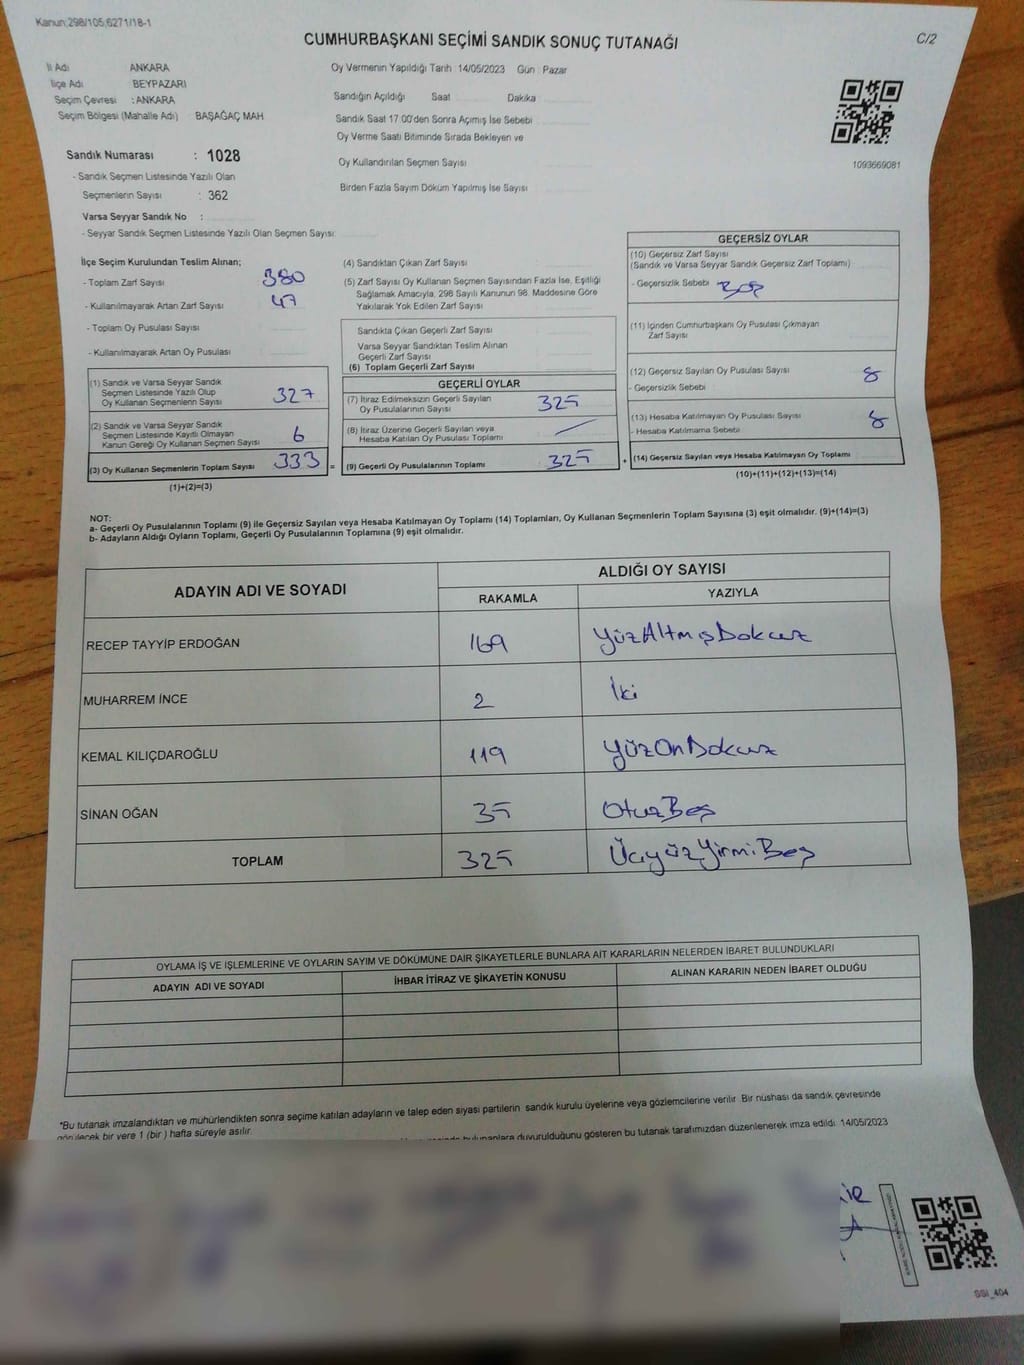 Kanun;298/105,6271/18-1
C/2
CUMHURBAŞKANI SEÇİMİ SANDIK SONUÇ TUTANAĞI
İl Adı ANKARA
İlçe Adı BEYPAZARI
Seçim Çevresi : ANKARA
Seçim Bölgesi (Mahalle Adı) BAŞAĞAÇ MAH
Sandık Numarası : 1028
- Sandık Seçmen Listesinde Yazılı Olan
Seçmenlerin Sayısı : 362
Varsa Seyyar Sandık No :
- Seyyar Sandık Seçmen Listesinde Yazılı Olan Seçmen Sayısı:
Oy Vermenin Yapıldığı Tarih :14/05/2023 Gün : Pazar
Sandığın Açıldığı Saat Dakika
Sandık Saat 17.00'den Sonra Açımış İse Sebebi
Oy Verme Saati Bitiminde Sırada Bekleyen ve
Oy Kullandırılan Seçmen Sayısı
Birden Fazla Sayım Döküm Yapılmış İse Sayısı
1093669081
İlçe Seçim Kurulundan Teslim Alınan;
- Toplam Zarf Sayısı 380
- Kullanılmayarak Artan Zarf Sayısı 47
- Toplam Oy Pusulası Sayısı
- Kullanılmayarak Artan Oy Pusulası
(1) Sandık ve Varsa Seyyar Sandık
Seçmen Listesinde Yazılı Olup
Oy Kullanan Seçmenlerin Sayısı 327
(2) Sandık ve Varsa Seyyar Sandık
Seçmen Listesinde Kayıtlı Olmayan
Kanun Gereği Oy Kullanan Seçmen Sayısı 6
(3) Oy Kullanan Seçmenlerin Toplam Sayısı 333 =
(1)+(2)=(3)
(4) Sandıktan Çıkan Zarf Sayısı
(5) Zarf Sayısı Oy Kullanan Seçmen Sayısından Fazla İse, Eşitliği
Sağlamak Amacıyla, 298 Sayılı Kanunun 98. Maddesine Göre
Yakılarak Yok Edilen Zarf Sayısı
Sandıkta Çıkan Geçerli Zarf Sayısı
Varsa Seyyar Sandıktan Teslim Alınan
Geçerli Zarf Sayısı
(6) Toplam Geçerli Zarf Sayısı
GEÇERLİ OYLAR
(7) İtiraz Edilmeksizin Geçerli Sayılan
Oy Pusulalarının Sayısı 325
(8) İtiraz Üzerine Geçerli Sayılan veya
Hesaba Katılan Oy Pusulası Toplamı /
(9) Geçerli Oy Pusulalarının Toplamı 325 +
GEÇERSİZ OYLAR
(10) Geçersiz Zarf Sayısı
(Sandık ve Varsa Seyyar Sandık Geçersiz Zarf Toplamı)
- Geçersizlik Sebebi Boş
(11) İçinden Cumhurbaşkanı Oy Pusulası Çıkmayan
Zarf Sayısı
(12) Geçersiz Sayılan Oy Pusulası Sayısı 8
- Geçersizlik Sebebi :
(13) Hesaba Katılmayan Oy Pusulası Sayısı 8
- Hesaba Katılmama Sebebi :
(14) Geçersiz Sayılan veya Hesaba Katılmayan Oy Toplamı
(10)+(11)+(12)+(13)=(14)
NOT:
a- Geçerli Oy Pusulalarının Toplamı (9) ile Geçersiz Sayılan veya Hesaba Katılmayan Oy Toplamı (14) Toplamları, Oy Kullanan Seçmenlerin Toplam Sayısına (3) eşit olmalıdır. (9)+(14)=(3)
b- Adayların Aldığı Oyların Toplamı, Geçerli Oy Pusulalarının Toplamına (9) eşit olmalıdır.
ADAYIN ADI VE SOYADI
ALDIĞI OY SAYISI
RAKAMLA YAZIYLA
RECEP TAYYİP ERDOĞAN 169 YüzAltmışDokuz
MUHARREM İNCE 2 İki
KEMAL KILIÇDAROĞLU 119 YüzOnDokuz
SİNAN OĞAN 35 OtuzBeş
TOPLAM 325 ÜçyüzYirmiBeş
OYLAMA İŞ VE İŞLEMLERİNE VE OYLARIN SAYIM VE DÖKÜMÜNE DAİR ŞİKAYETLERLE BUNLARA AİT KARARLARIN NELERDEN İBARET BULUNDUKLARI
ADAYIN ADI VE SOYADI İHBAR İTİRAZ VE ŞİKAYETİN KONUSU ALINAN KARARIN NEDEN İBARET OLDUĞU
*Bu tutanak imzalandıktan ve mühürlendikten sonra seçime katılan adayların ve talep eden siyasi partilerin sandık kurulu üyelerine veya gözlemcilerine verilir. Bir nüshası da sandık çevresinde
görülecek bir yere 1 (bir ) hafta süreyle asılır.
bulunanlara duyurulduğunu gösteren bu tutanak tarafımızdan düzenlenerek imza edildi. 14/05/2023
SSI_404